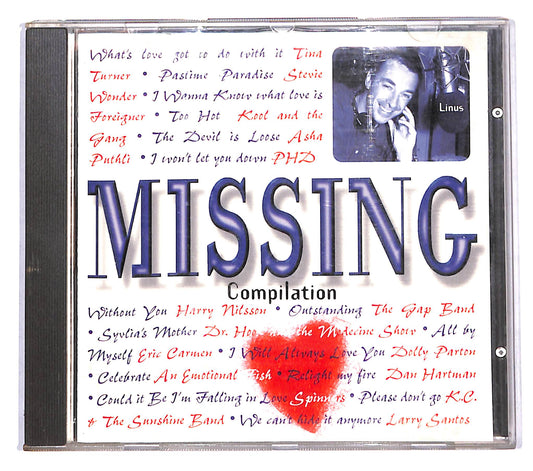 What's love got to do with it Tina
Turner • Pastime Paradise Stevie
Wonder • I Wanna Know what love is
Foreigner • Too Hot Kool and the
Gang • The Devil is Loose Asha
Puthli • I won't let you down PHD
Linus
MISSING
Compilation
Without You Harry Nilsson • Outstanding The Gap Band
• Syvlia's Mother Dr. Hook and the Medecine Show • All by
Myself Eric Carmen • I Will Always Love You Dolly Parton
• Celebrate An Emotional Fish • Relight my fire Dan Hartman
• Could it Be I'm Falling in Love Spinners • Please don't go K.C.
& The Sunshine Band • We can't hide it anymore Larry Santos